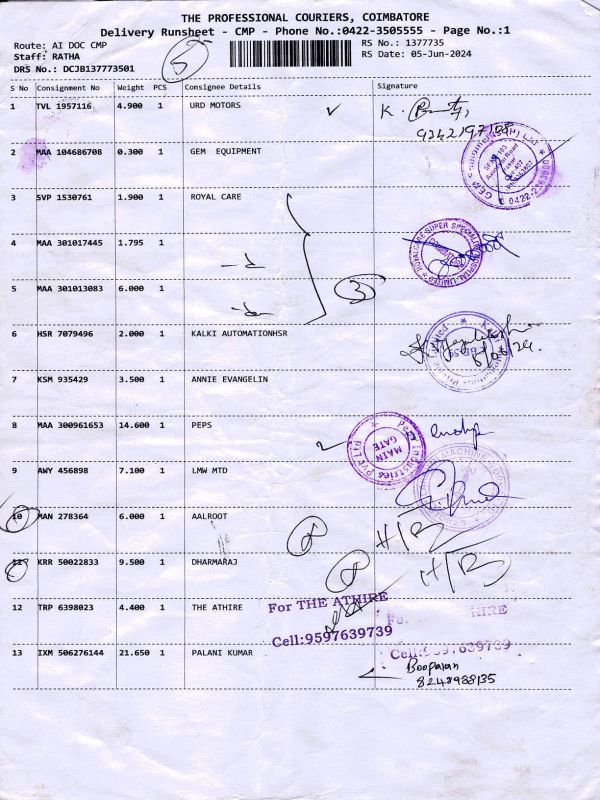 THE PROFESSIONAL COURIERS, COIMBATORE
Delivery Runsheet - CMP - Phone No.:0422-3505555 - Page No.:1
Route: AI DOC CMP
Staff: RATHA
DRS No.: DCJB137773501
RS No.: 1377735
RS Date: 05-Jun-2024
S No Consignment No Weight PCS Consignee Details Signature
1 TVL 1957116 4.900 1 URD MOTORS
2 MAA 104686708 0.300 1 GEM EQUIPMENT
3 SVP 1530761 1.900 1 ROYAL CARE
4 MAA 301017445 1.795 1
5 MAA 301013083 6.000 1
3
6 HSR 7079496 2.000 1 KALKI AUTOMATIONHSR
7 KSM 935429 3.500 1 ANNIE EVANGELIN
8 MAA 300961653 14.600 1 PEPS
MAIN GATE
9 AWY 456898 7.100 1 LMW MTD
10 MAN 278364 6.000 1 AALROOT
H/B
11 KRR 50022833 9.500 1 DHARMARAJ
H/B
12 TRP 6398023 4.400 1 THE ATHIRE
For THE ATHIRE
Cell:9597639739
13 IXM 506276144 21.650 1 PALANI KUMAR
Boopalan
8248988135